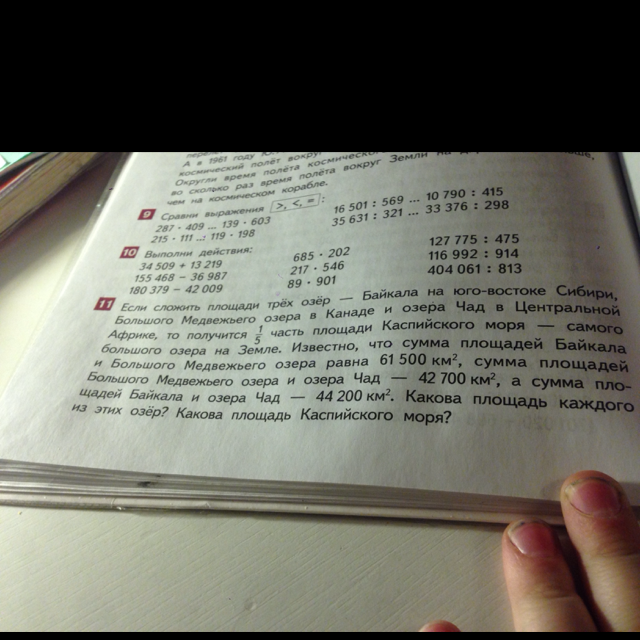 А в 1961 году
космический полёт вокруг
Округли время полёта космического
во сколько раз время полёта вокруг Земли на
чем на космическом корабле.
9 Сравни выражения >, <, = :
287 · 409 ... 139 · 603 16 501 : 569 ... 10 790 : 415
215 · 111 ... 119 · 198 35 631 : 321 ... 33 376 : 298
10 Выполни действия:
34 509 + 13 219 685 · 202 127 775 : 475
155 468 − 36 987 217 · 546 116 992 : 914
180 379 − 42 009 89 · 901 404 061 : 813
11 Если сложить площади трёх озёр — Байкала на юго-востоке Сибири,
Большого Медвежьего озера в Канаде и озера Чад в Центральной
Африке, то получится 1/5 часть площади Каспийского моря — самого
большого озера на Земле. Известно, что сумма площадей Байкала
и Большого Медвежьего озера равна 61 500 км², сумма площадей
Большого Медвежьего озера и озера Чад — 42 700 км², а сумма пло-
щадей Байкала и озера Чад — 44 200 км². Какова площадь каждого
из этих озёр? Какова площадь Каспийского моря?